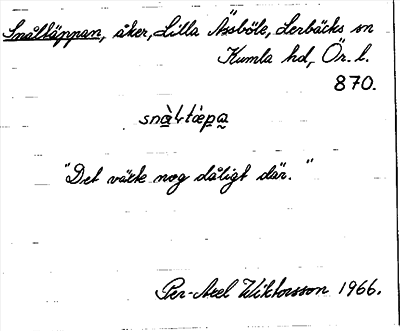 Snåltäppan, åker, Lilla Åssböle, Lerbäcks sn
Kumla hd, Ör. l.
870.
"Det växte nog dåligt där."
Per-Axel Wiktorsson 1966.